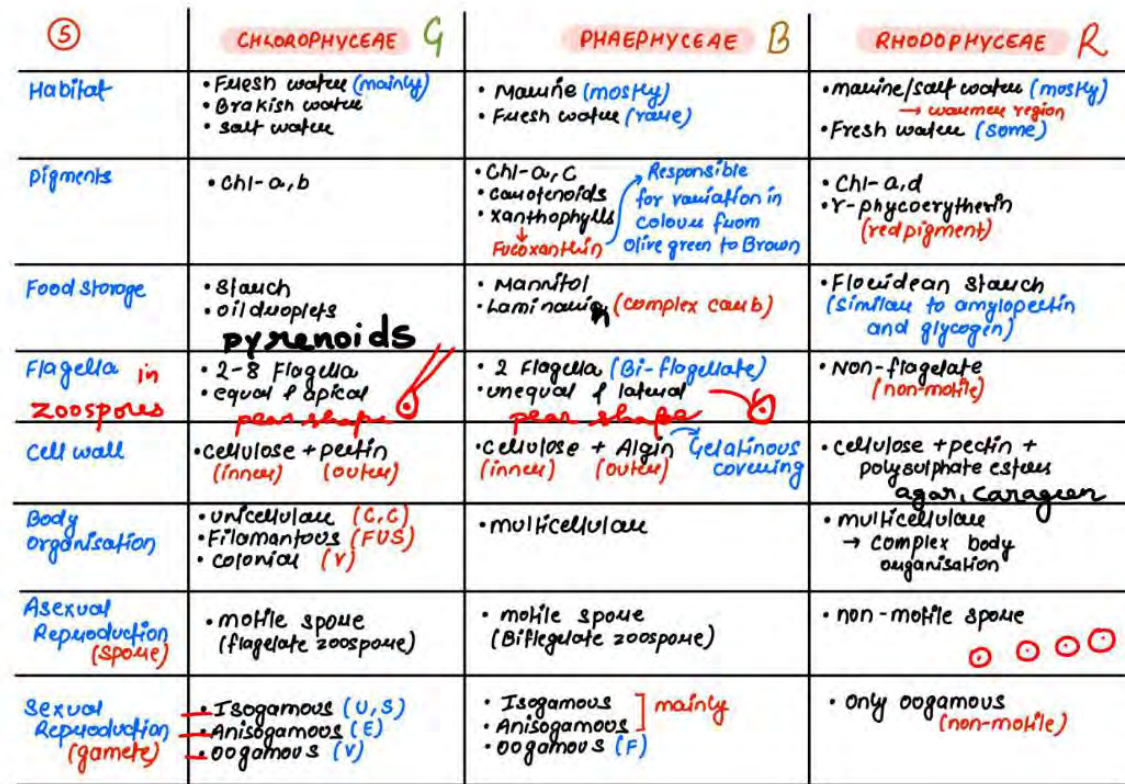 5 CHLOROPHYCEAE G PHAEPHYCEAE B RHODOPHYCEAE R
Habitat
• Fresh water (mainly)
• Brakish water
• salt water
• Marine (mostly)
• Fresh water (rare)
• marine/salt water (mostly)
→ warmer region
• Fresh water (some)
pigments
• chl-a, b
• Chl-a, c
• carotenoids
• xanthophylls
↓
Fucoxanthin
Responsible
for variation in
colour from
Olive green to Brown
• Chl-a,d
• r-phycoerytherin
(red pigment)
Food storage
• starch
• oil droplets
pyrenoids
• Mannitol
• Laminarin (complex carb)
• Floridean starch
(similar to amylopectin
and glycogen)
Flagella in
zoospores
• 2-8 Flagella
• equal & apical
pear shape
• 2 Flagella (Bi-flagellate)
• unequal & lateral
pear shape
• Non-flagelate
(non-motile)
Cell wall
• cellulose + pectin
(inner) (outer)
• cellulose + Algin → Gelatinous
(inner) (outer) covering
• cellulose + pectin +
polysulphate esters
agar, carageen
Body
organisation
• unicellular (C,C)
• Filamantous (FUS)
• colonial (V)
• multicellular
• multicellular
→ complex body
organisation
Asexual
Reproduction
(spore)
• motile spore
(flagelate zoospore)
• motile spore
(Biflegelate zoospore)
• non-motile spore
Sexual
Reproduction
(gamete)
• Isogamous (U,S)
• Anisogamous (E)
• oogamous (V)
• Isogamous
• Anisogamous ] mainly
• oogamous (F)
• only oogamous
(non-motile)